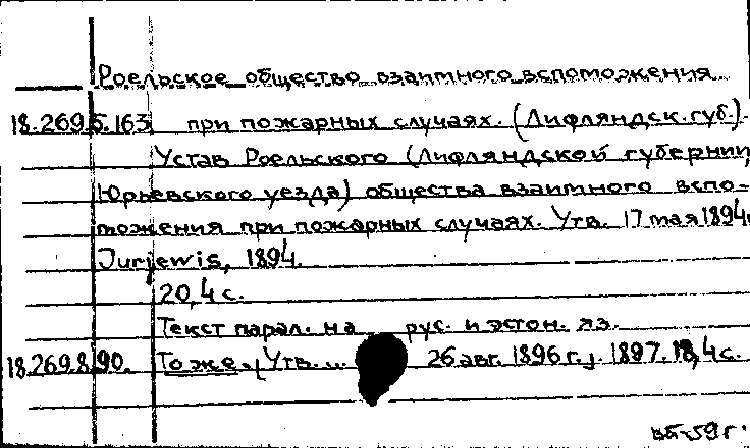 Роельское общество взаимного вспоможения
18.269.5.163 при пожарных случаях. (Лифляндск. губ.).
Устав Роельского (Лифляндской губернии
Юрьевского уезда) общества взаимного вспо-
можения при пожарных случаях. Утв. 17 мая 1894г
Jurjewis, 1894.
20,4 с.
Текст парал. на рус. и эстон. яз.
18.269.8.90. То же., Утв. ... 26 авг. 1896 г.; 1897. 18,4 с.